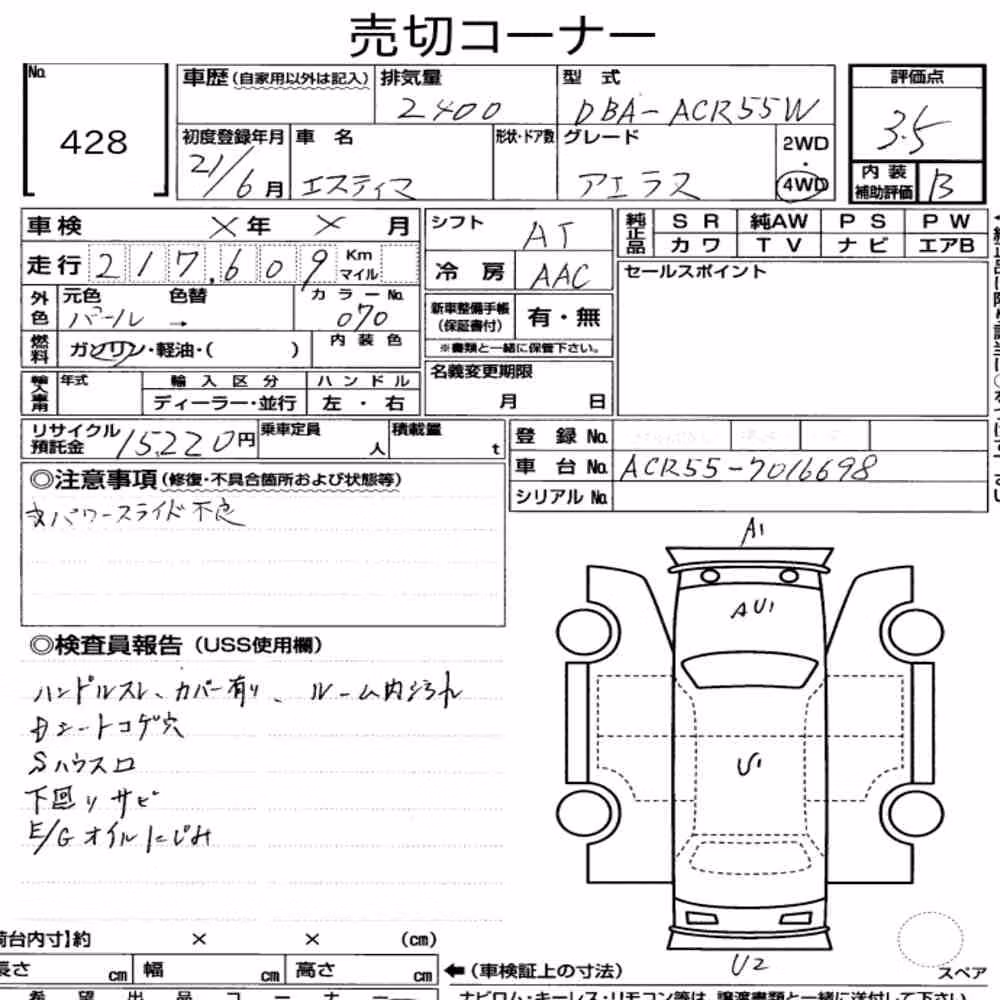 売切コーナー
No. 428
車歴(自家用以外は記入)
排気量 2400
型式 DBA-ACR55W
評価点 3.5
初度登録年月 21/6月
車名 エスティマ
形状・ドア数
グレード アエラス
2WD・4WD
内装補助評価 B
車検 ×年 ×月
走行 217,609 Km マイル
外色 元色 パール → 色替
カラーNo. 070
燃料 ガソリン・軽油・( )
内装色
輸入車用 年式
輸入区分 ディーラー・並行
ハンドル 左・右
シフト AT
冷房 AAC
新車整備手帳(保証書付) 有・無
※書類と一緒に保管下さい。
名義変更期限 月 日
純正品 SR 純AW PS PW
カワ TV ナビ エアB
セールスポイント
リサイクル預託金 15220円
乗車定員 人
積載量 t
登録No.
車台No. ACR55-7016698
シリアルNo.
◎注意事項(修復・不具合箇所および状態等)
パワースライド不良
◎検査員報告(USS使用欄)
ハンドルスレ、カバー有り、ルーム内汚れ
Dシートコゲ穴
Sハウスロ
下回りサビ
E/Gオイルにじみ
A1
AU1
U1
U2
スペア
荷台内寸】約 × × (cm)
長さ cm 幅 cm 高さ cm
←(車検証上の寸法)
希望出品コーナー
ナビロム・キーレス・リモコン等は、譲渡書類と一緒に送付して下さい。